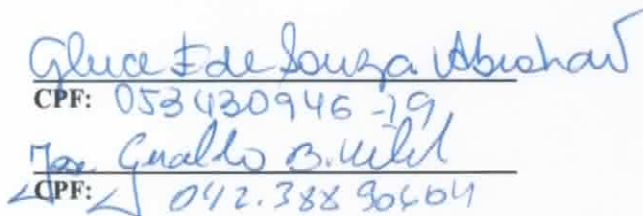 Gluce E de Souza Abrahão
CPF: 053430946-79
Geraldo B.
CPF: 042.388 90604